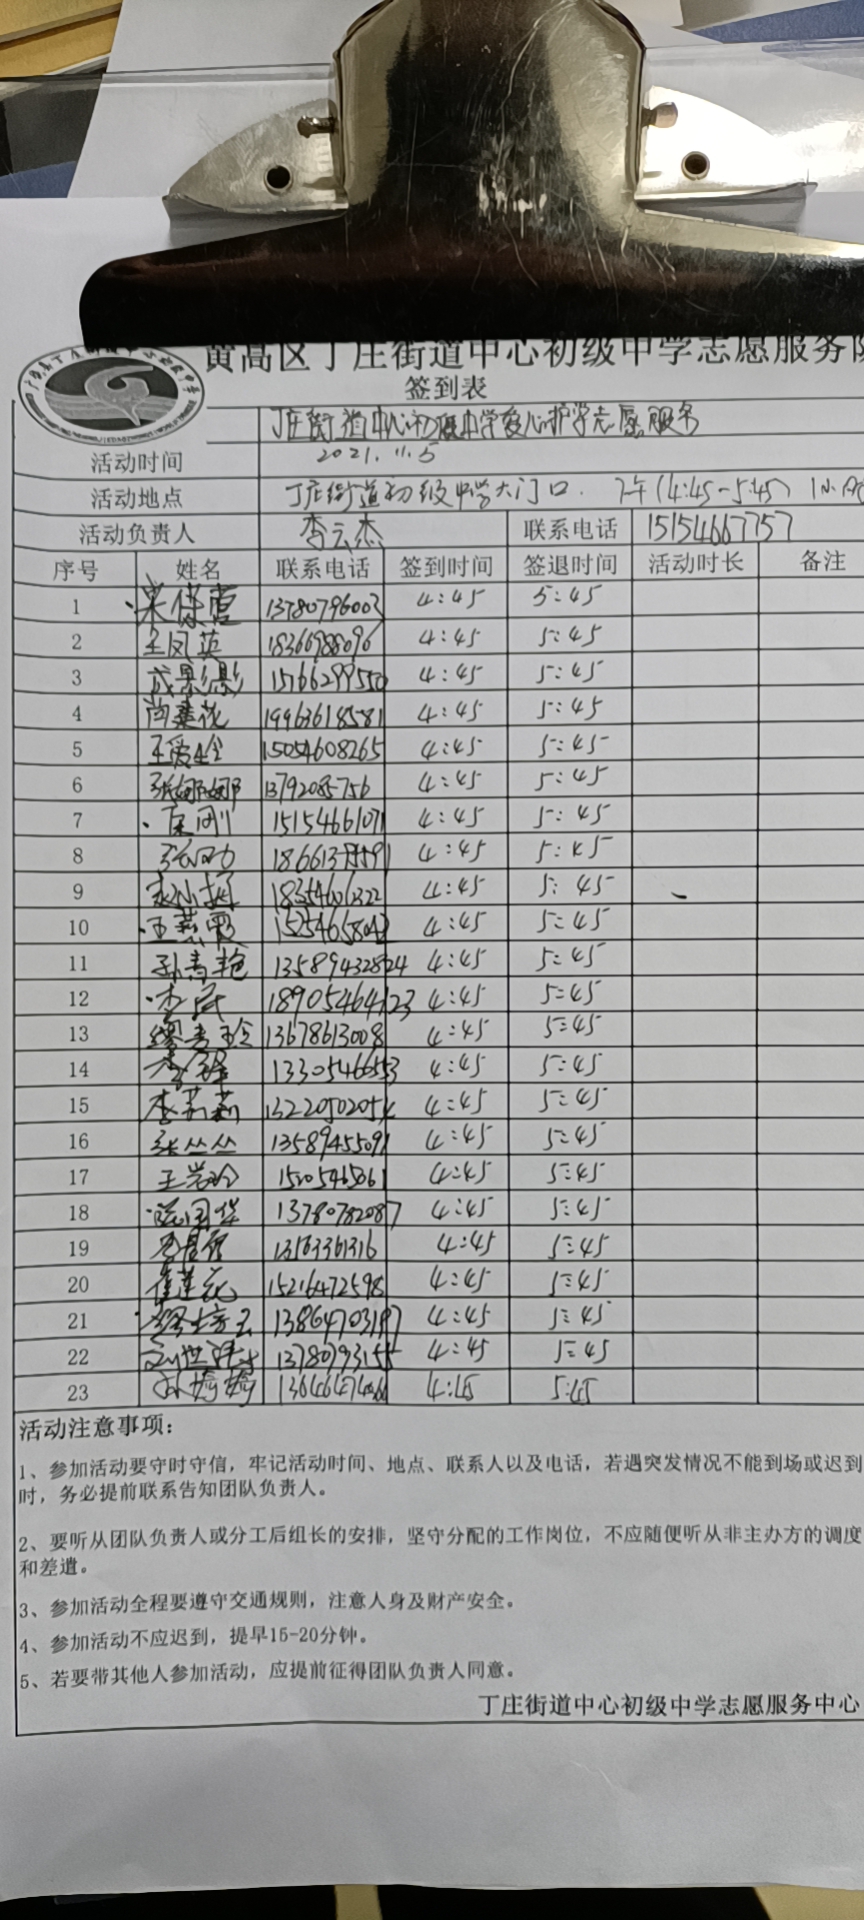 黄高区丁庄街道中心初级中学志愿服务队
签到表
丁庄街道中心初级中学爱心护学志愿服务
活动时间 2021.11.5
活动地点 丁庄街道初级中学大门口. 下午(4:45-5:45) 1小时
活动负责人 李云杰 联系电话 15154667757
序号 姓名 联系电话 签到时间 签退时间 活动时长 备注
1 13780796003 4:45 5:45
2 王凤英 18366988096 4:45 5:45
3 成彩影 15166299550 4:45 5:45
4 尚莲花 19963618581 4:45 5:45
5 王爱全 15054608265 4:45 5:45
6 张娜娜 13792085756 4:45 5:45
7 15154661071 4:45 5:45
8 4:45 5:45
9 18354606322 4:45 5:45
10 王燕霞 4:45 5:45
11 孙青艳 4:45 5:45
12 李民 18905464123 4:45 5:45
13 缪青玲 13678613008 4:45 5:45
14 李锋 13305466553 4:45 5:45
15 李莉莉 13220502054 4:45 5:45
16 张丛丛 13589455091 4:45 5:45
17 4:45 5:45
18 13780782087 4:45 5:45
19 13163361316 4:45 5:45
20 崔莲花 15216472598 4:45 5:45
21 13864703197 4:45 5:45
22 13780793155 4:45 5:45
23 4:45 5:45
活动注意事项：
1、参加活动要守时守信，牢记活动时间、地点、联系人以及电话，若遇突发情况不能到场或迟到
时，务必提前联系告知团队负责人。
2、要听从团队负责人或分工后组长的安排，坚守分配的工作岗位，不应随便听从非主办方的调度
和差遣。
3、参加活动全程要遵守交通规则，注意人身及财产安全。
4、参加活动不应迟到，提早15-20分钟。
5、若要带其他人参加活动，应提前征得团队负责人同意。
丁庄街道中心初级中学志愿服务中心